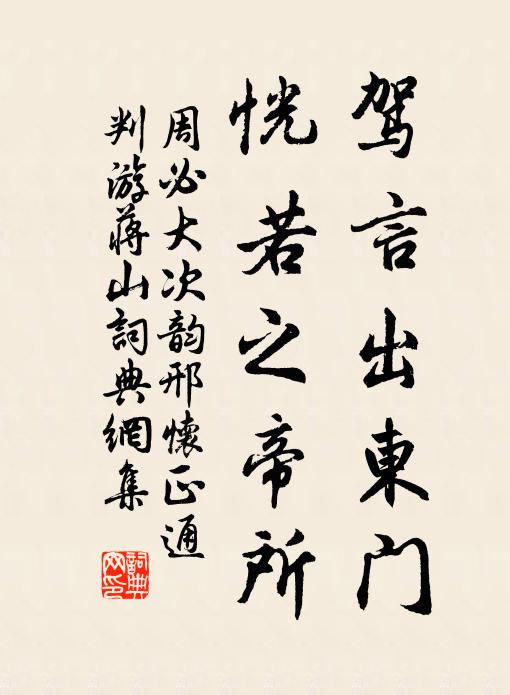 驾言出東门
恍若之帝所
周必大次韵邢懷正通
判游蔣山詞典網集
詞典
网印